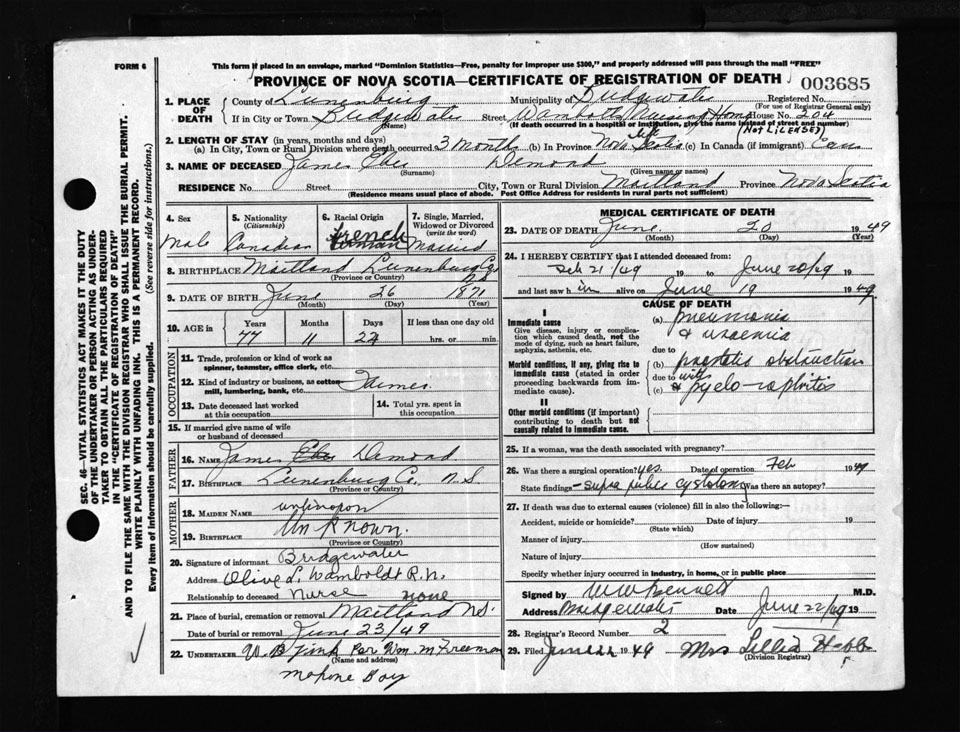 FORM 6
This form if placed in an envelope, marked "Dominion Statistics—Free, penalty for improper use $300," and properly addressed will pass through the mail "FREE"
PROVINCE OF NOVA SCOTIA—CERTIFICATE OF REGISTRATION OF DEATH
003685
1. PLACE OF DEATH
County of Lunenburg Municipality of Bridgewater Registered No.
(For use of Registrar General only)
If in City or Town Bridgewater Street Nursing Home House No. 204
(Name) (If death occurred in a hospital or institution, give the name instead of street and number)
(NOT LICENSED)
2. LENGTH OF STAY (in years, months and days)
(a) In City, Town or Rural Division where death occurred 3 months (b) In Province Nova Scotia life (c) In Canada (if immigrant) Can
3. NAME OF DECEASED James Eber Demond
(Surname) (Given name or names)
RESIDENCE No. Street City, Town or Rural Division Maitland Province Nova Scotia
(Residence means usual place of abode. Post Office Address for residents in rural parts not sufficient)
4. Sex
Male
5. Nationality (Citizenship)
Canadian
6. Racial Origin
French
7. Single, Married, Widowed or Divorced (write the word)
Married
8. BIRTHPLACE Maitland Lunenburg Co.
(Province or Country)
9. DATE OF BIRTH June 26 1871
(Month) (Day) (Year)
10. AGE in
Years Months Days If less than one day old
77 11 24 hrs. or min.
OCCUPATION
11. Trade, profession or kind of work as spinner, teamster, office clerk, etc.
12. Kind of industry or business, as cotton mill, lumbering, bank, etc.
13. Date deceased last worked at this occupation
14. Total yrs. spent in this occupation
15. If married give name of wife or husband of deceased
FATHER
16. NAME James Demond
17. BIRTHPLACE Lunenburg Co., N.S.
(Province or Country)
MOTHER
18. MAIDEN NAME unknown
19. BIRTHPLACE Unknown.
(Province or Country)
20. Signature of informant Bridgewater
Address Olive L. Wamboldt R.N.
Relationship to deceased Nurse none
21. Place of burial, cremation or removal Maitland N.S.
Date of burial or removal June 23/49
22. UNDERTAKER Per Wm. M Freeman
(Name and address)
Mahone Bay
MEDICAL CERTIFICATE OF DEATH
23. DATE OF DEATH June 20 1949
(Month) (Day) (Year)
24. I HEREBY CERTIFY that I attended deceased from:
Feb 21/49 19 to June 20/49 19
and last saw him alive on June 19 1949
CAUSE OF DEATH
I
Immediate cause
Give disease, injury or complication which caused death, not the mode of dying, such as heart failure, asphyxia, asthenia, etc.
(a) pneumonia & uraemia
due to
Morbid conditions, if any, giving rise to immediate cause (stated in order proceeding backwards from immediate cause).
(b) prostatic obstruction
due to with
(c) & pyelo-nephritis
II
Other morbid conditions (if important) contributing to death but not causally related to immediate cause.
25. If a woman, was the death associated with pregnancy?
26. Was there a surgical operation? yes. Date of operation Feb 1949
State findings - supra pubic cystotomy Was there an autopsy?
27. If death was due to external causes (violence) fill in also the following:
Accident, suicide or homicide? Date of injury 19
(State which)
Manner of injury
(How sustained)
Nature of injury
Specify whether injury occurred in industry, in home, or in public place
Signed by W W Bennett M.D.
Address Bridgewater Date June 22/49 19
28. Registrar's Record Number 2
29. Filed June 22 1949 Mrs Lillie Hebb
(Division Registrar)
SEC. 46—VITAL STATISTICS ACT MAKES IT THE DUTY OF THE UNDERTAKER OR PERSON ACTING AS UNDERTAKER TO OBTAIN ALL THE PARTICULARS REQUIRED IN THE "CERTIFICATE OF REGISTRATION OF DEATH" AND TO FILE THE SAME WITH THE DIVISION REGISTRAR WHO SHALL ISSUE THE BURIAL PERMIT.
WRITE PLAINLY WITH UNFADING INK. THIS IS A PERMANENT RECORD.
Every item of information should be carefully supplied. (See reverse side for instructions.)